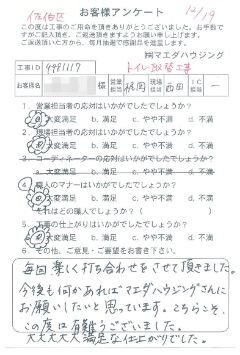 佐伯区
お客様アンケート
12/19
この度は工事のご用命を頂きありがとうございました。お手数ですがご記入頂き、ご返送頂けますようお願い申し上げます。
ご返送頂いた方から、毎月抽選で感謝品を進呈します。
㈱マエダハウジング
工事ID 4991117 トイレ取替工事
お客様名 様 営業担当 梶岡 現場担当 西田 IC担当 ー
1. 営業担当者の応対はいかがでしたでしょうか?
a. 大変満足 b. 満足 c. やや不満 d. 不満
2. 現場担当者の応対はいかがでしたでしょうか?
a. 大変満足 b. 満足 c. やや不満 d. 不満
3. コーディネーターの応対はいかがでしたでしょうか?
a. 大変満足 b. 満足 c. やや不満 d. 不満
4. 職人のマナーはいかがでしたでしょうか?
a. 大変満足 b. 満足 c. やや不満 d. 不満
それはどの職人でしょうか?( )
5. 工事の仕上がりはいかがでしたでしょうか?
a. 大変満足 b. 満足 c. やや不満 d. 不満
6. その他、ご意見・ご要望をお書き下さい。
毎回 楽しく打ち合わせをさせて頂きました。
今後も何かあればマエダハウジングさんに
お願いしたいと思っています。こちらこそ、
この度は有難うございました。
大大大大大満足な仕上がりでした。